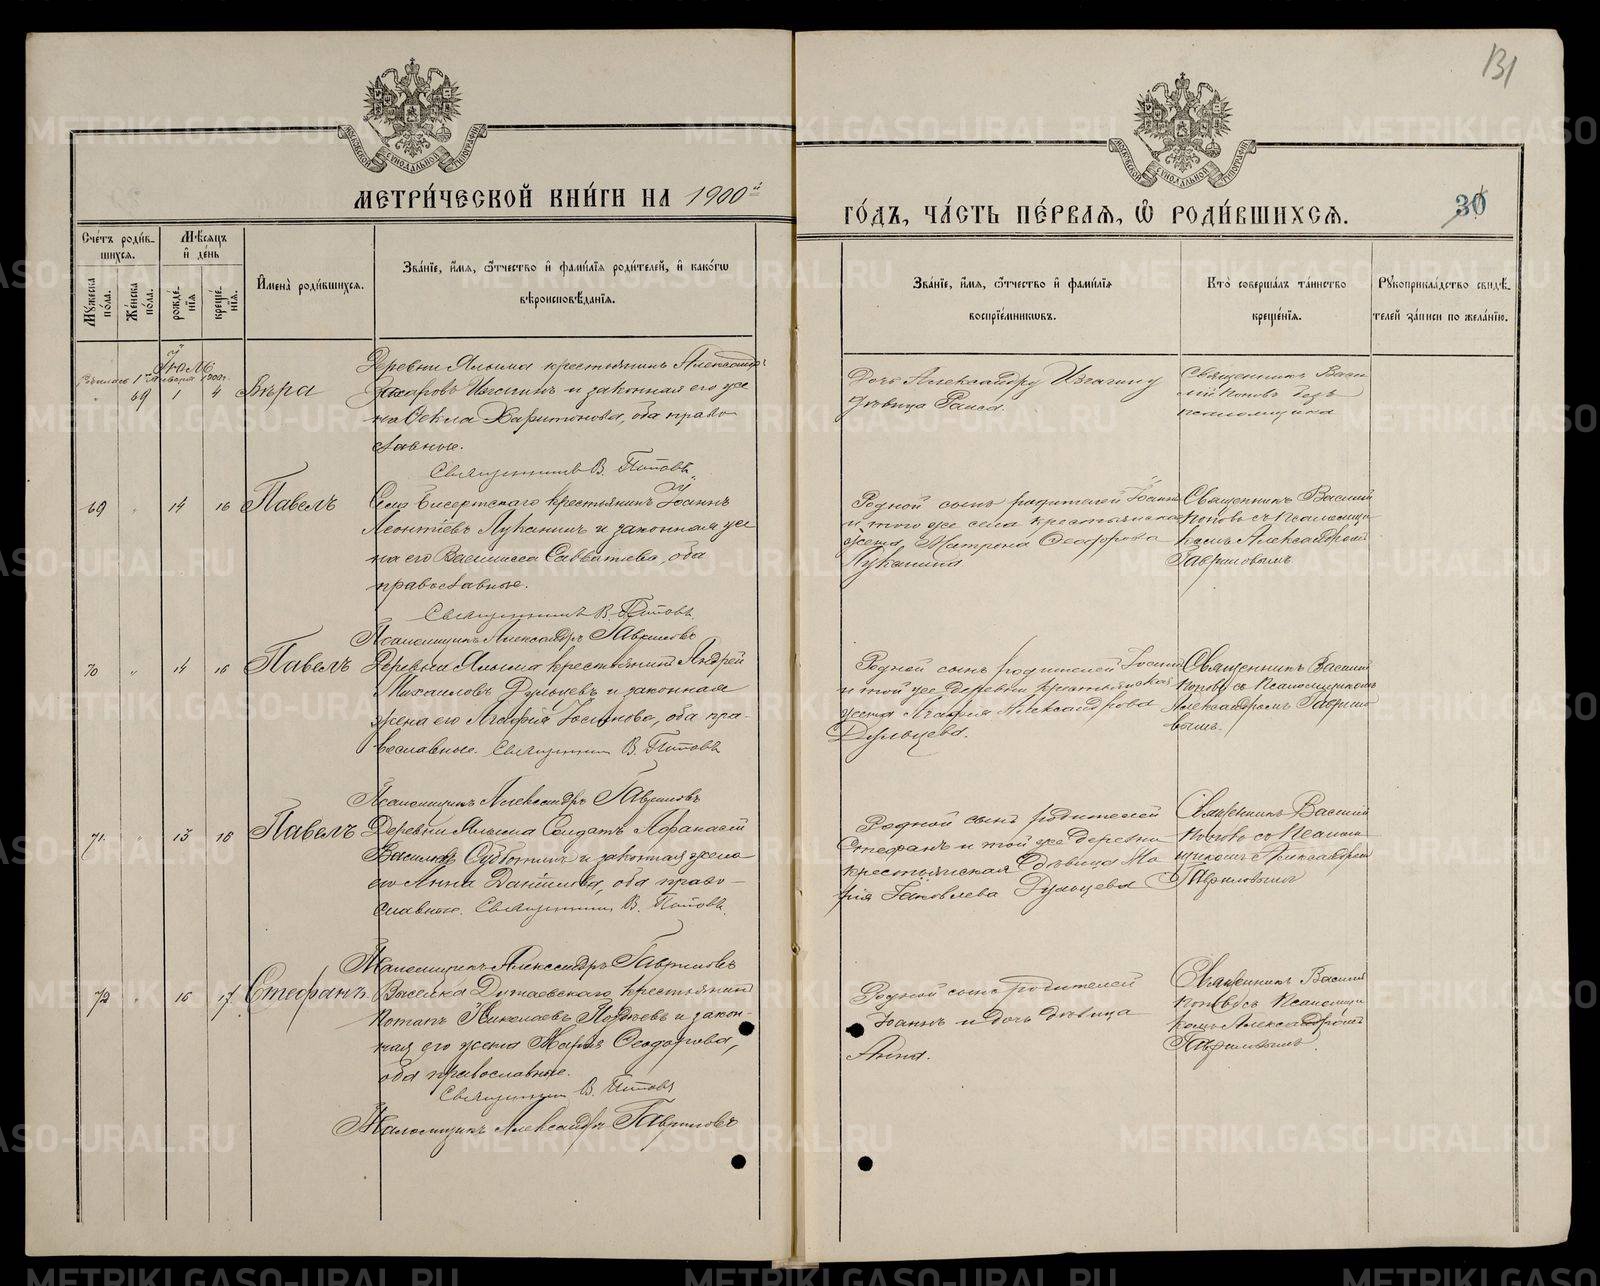 131
МЕТРИ́ЧЕСКОЙ КНИ́ГИ НА 1900й
ГО́ДЪ, ЧА́СТЬ ПЕ́РВАЯ, Ѽ РОДИ́ВШИХСЯ.
30
Сче́тъ роди́в-
шихся.
Мѣ́сяцъ
и҆ де́нь
Му́жеска
по́ла.
Же́нска
по́ла.
рожде́-
нїя
креще́-
нїя.
И҆мена̀ роди́вшихся.
Зва́нїе, и҆́мя, ѻ҆́тчество и҆ фами́лїя роди́телей, и҆ како́гѡ
вѣроисповѣ́данїя.
Зва́нїе, и҆́мя, ѻ҆́тчество и҆ фами́лїя
воспрїе́мниковъ.
Кто̀ соверша́лъ та́инство
креще́нїя.
Рꙋкоприкла́дство свидѣ́-
телей за́писи по жела́нїю.
69 1 4 Вѣра
Деревни Алыша крестьянинъ Александръ
и законная его же-
на Ѳекла Харитонова, оба право-
славные.
Священникъ В. Поповъ
Дочь Александру
дѣвица Раиса.
Священникъ Васи-
лій Поповъ безъ
псаломщика
69 " 14 16 Павелъ
Села Бисертскаго крестьянинъ Іоаннъ
Леонтіевъ Луканинъ и законная же-
на его Василисса Савватіева, оба
православные.
Священникъ В. Поповъ
Псаломщикъ Александръ Гавриловъ
Родной сынъ родителей Іоаннъ
и того же села крестьянская
жена Матрона Ѳеодорова
Луканина.
Священникъ Василій
Поповъ съ псаломщи-
комъ Александромъ
Гавриловымъ
70 " 14 16 Павелъ
Деревни Алыша крестьянинъ Андрей
Михаиловъ Дульцевъ и законная
жена его Агафія Іосифова, оба пра-
вославные. Священникъ В. Поповъ
Псаломщикъ Александръ Гавриловъ
Родной сынъ родителей Іоаннъ
и той же деревни крестьянская
жена Агафія Александрова
Дульцева.
Священникъ Василій
Поповъ съ псаломщикомъ
Александромъ Гаврило-
вымъ.
71. " 15 16 Павелъ
Деревни Алыша Солдатъ Аѳанасій
Василіевъ Субботинъ и законная жена
его Анна Даніилова, оба право-
славные. Священникъ В. Поповъ.
Псаломщикъ Александръ Гавриловъ
Родной сынъ родителей
Стефанъ и той же деревни
крестьянская дѣвица Ма-
рія Іаковлева Дульцева
Священникъ Василій
Поповъ съ псалом-
щикомъ Александромъ
Гавриловымъ
72 " 16 17 Стефанъ
Выселка Дутаевскаго крестьянинъ
Потапъ Николаевъ и закон-
ная его жена Марія Ѳеодорова,
оба православные.
Священникъ В. Поповъ
Псаломщикъ Александръ Гавриловъ
Родной сынъ родителей
Іоаннъ и дочь дѣвица
Анна.
Священникъ Василій
Поповъ съ псаломщи-
комъ Александромъ
Гавриловымъ.
METRIKI.GASO-URAL.RU